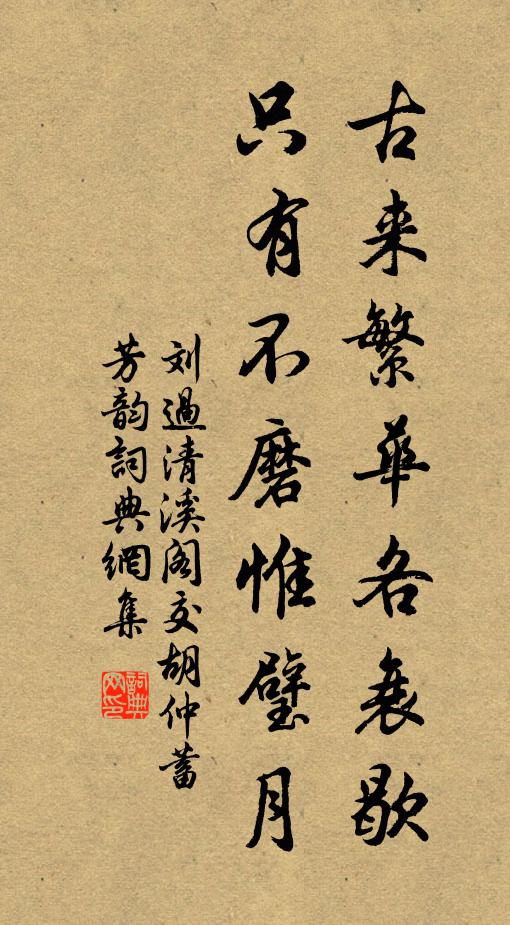 古来繁華各衰歇
只有不磨惟璧月
刘過清溪阁交胡仲蓄
芳韵詞典網集
詞典網印